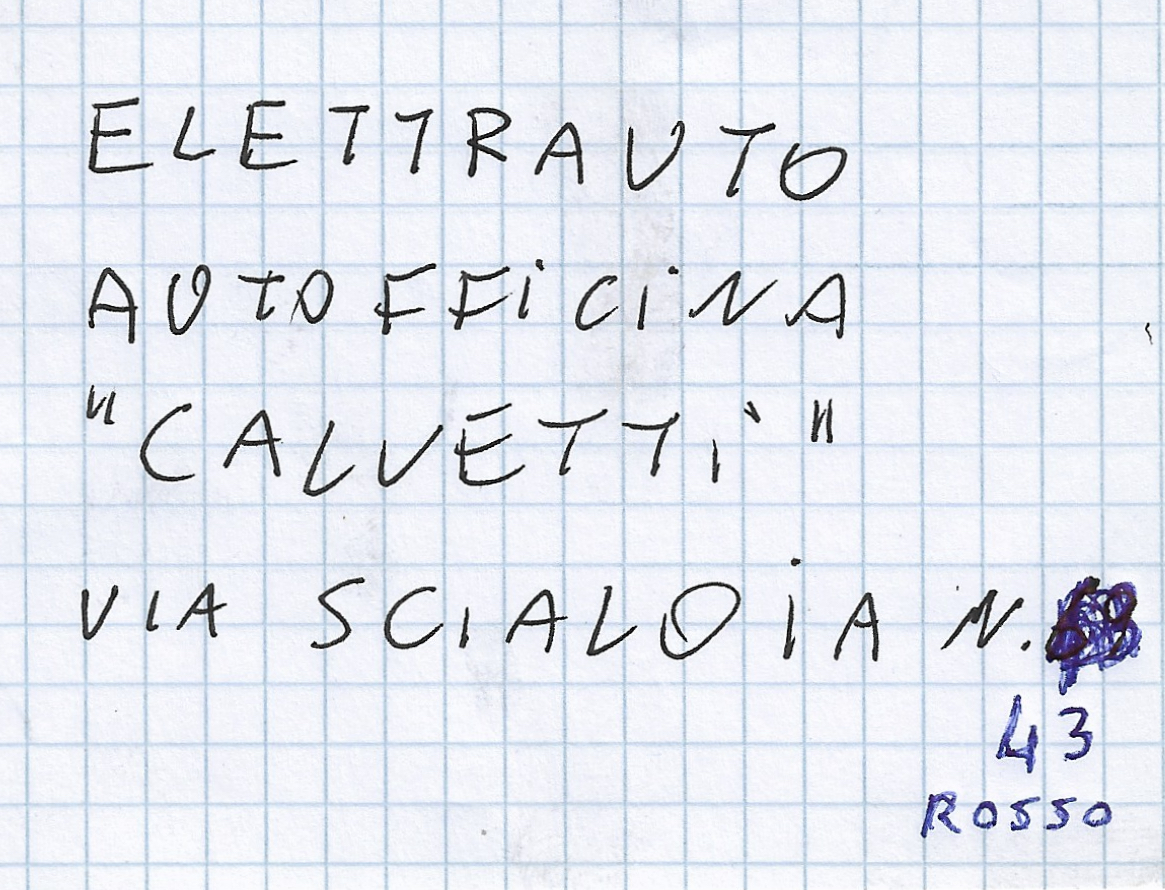 ELETTRAUTO
AUTOFFiCiNA
"CALVETTi"
VIA SCIALOiA N.
43
ROSSO